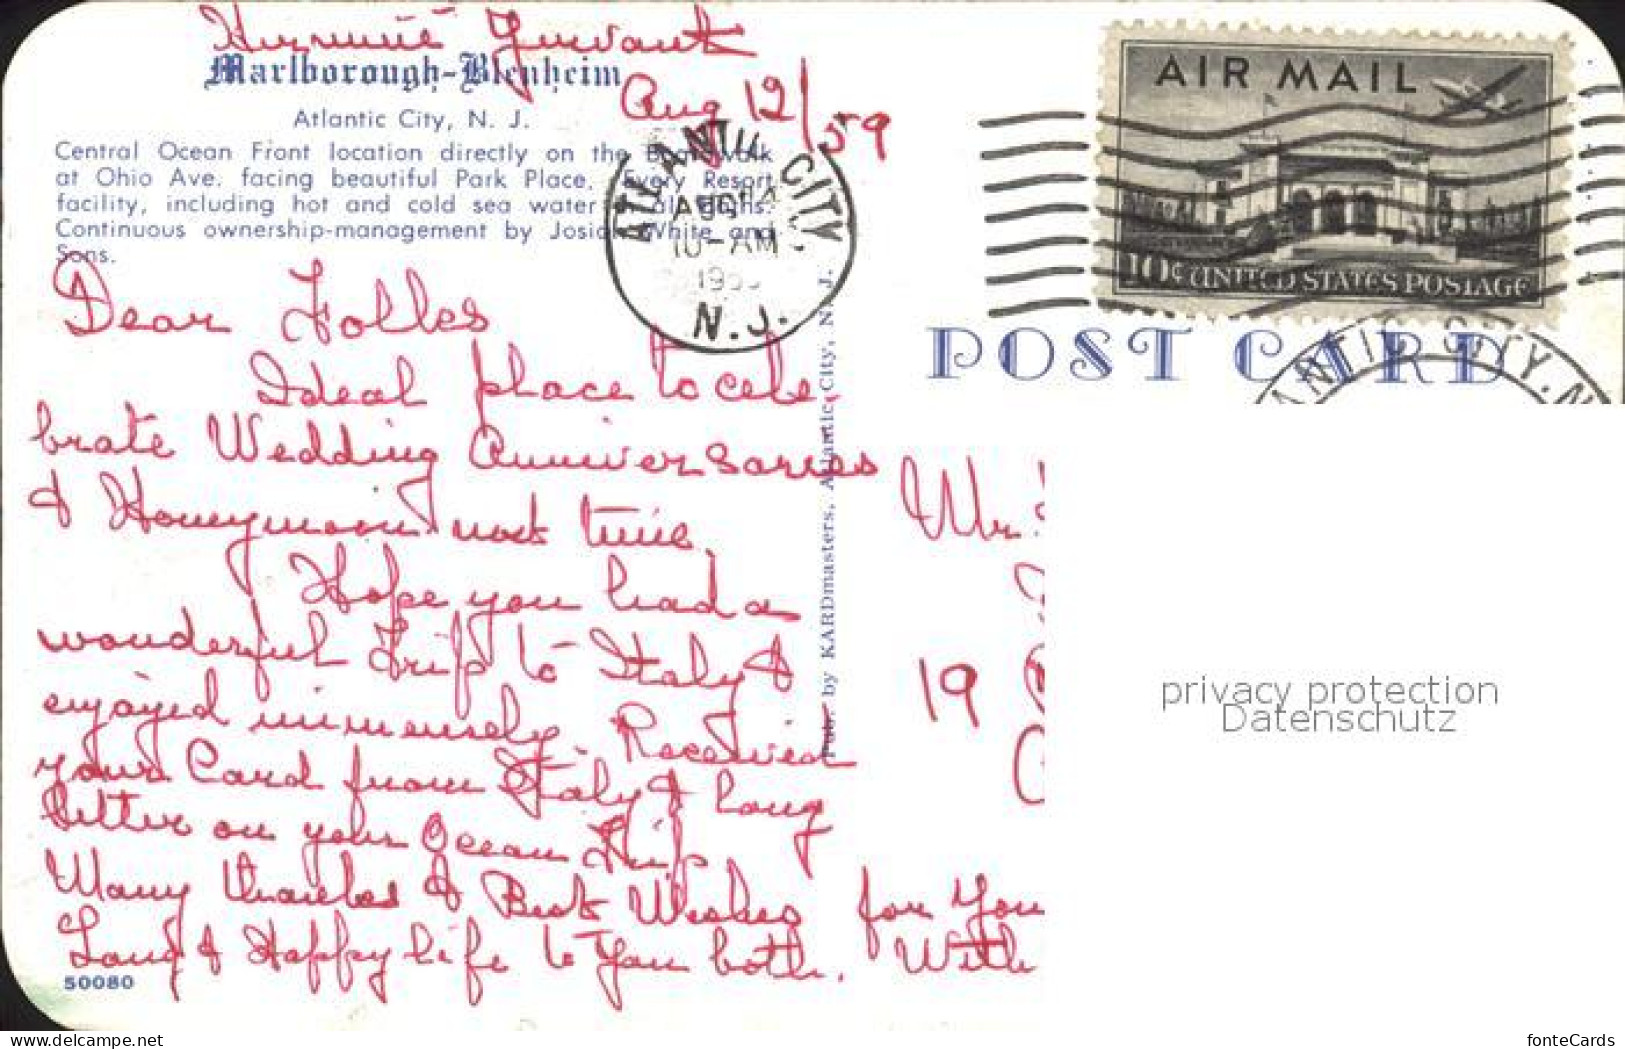 Aug 12/59
Marlborough-Blenheim
Atlantic City, N. J.
Central Ocean Front location directly on the Boardwalk
at Ohio Ave. facing beautiful Park Place. Every Resort
facility, including hot and cold sea water in all baths.
Continuous ownership-management by Josiah White and
Sons.
ATLANTIC CITY
10-AM
N.J.
AIR MAIL
10¢ UNITED STATES POSTAGE
POST CARD
ANTIC CITY, N
Dear Folkes
Ideal place to cele-
brate Wedding Anniversaries
& Honeymoon next time.
Hope you had a
wonderful Trip to Italy &
enjoyed immensely. Received
your Card from Italy & long
letter on your Ocean Trip
Many thanks & Best Wishes for you
Long & Happy life to you both. With
50080
Pub. by KARDmasters, Atlantic City, N. J.
Mr.
19
privacy protection
Datenschutz
www.delcampe.net
fonteCards